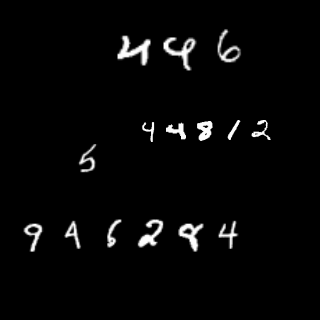 446
44812
5
946284